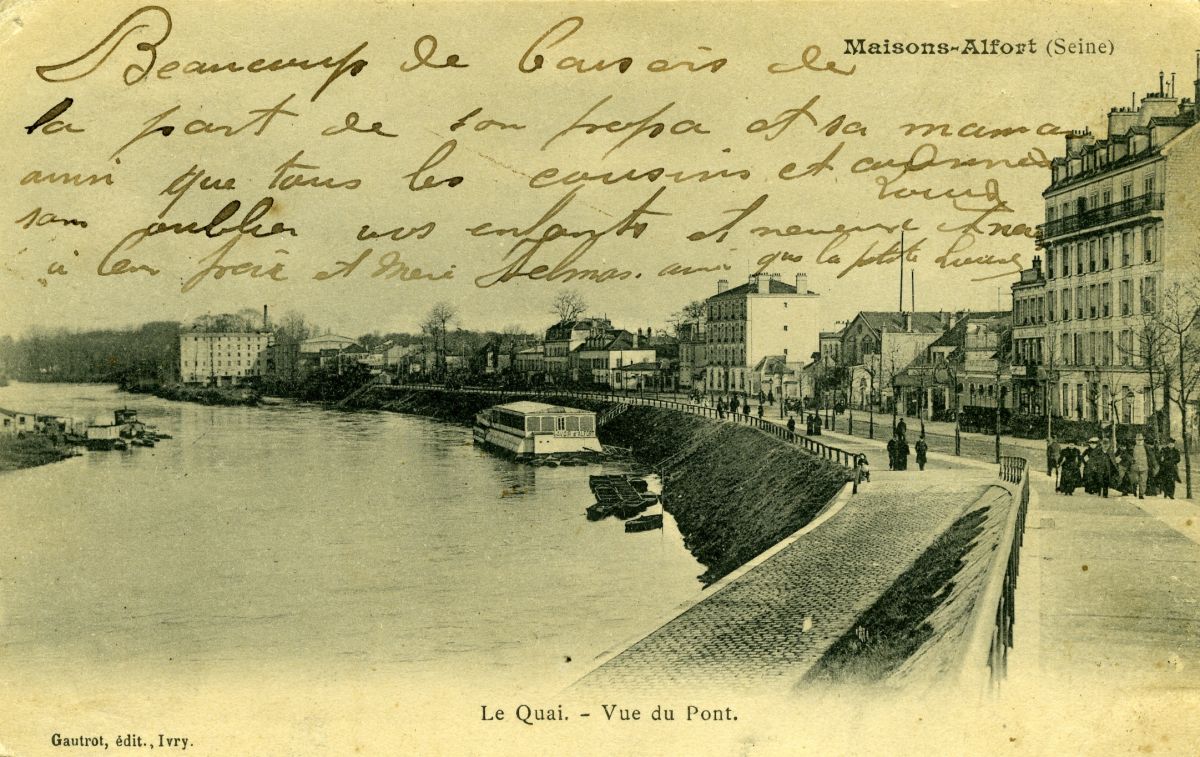 Maisons-Alfort (Seine)
Beaucoup de baisers de
la part de son papa et sa maman
ainsi que tous les cousins et
sans oublier vos enfants et neveux et
à leur et ainsi que la petite
Le Quai. - Vue du Pont.
Gautrot, édit., Ivry.